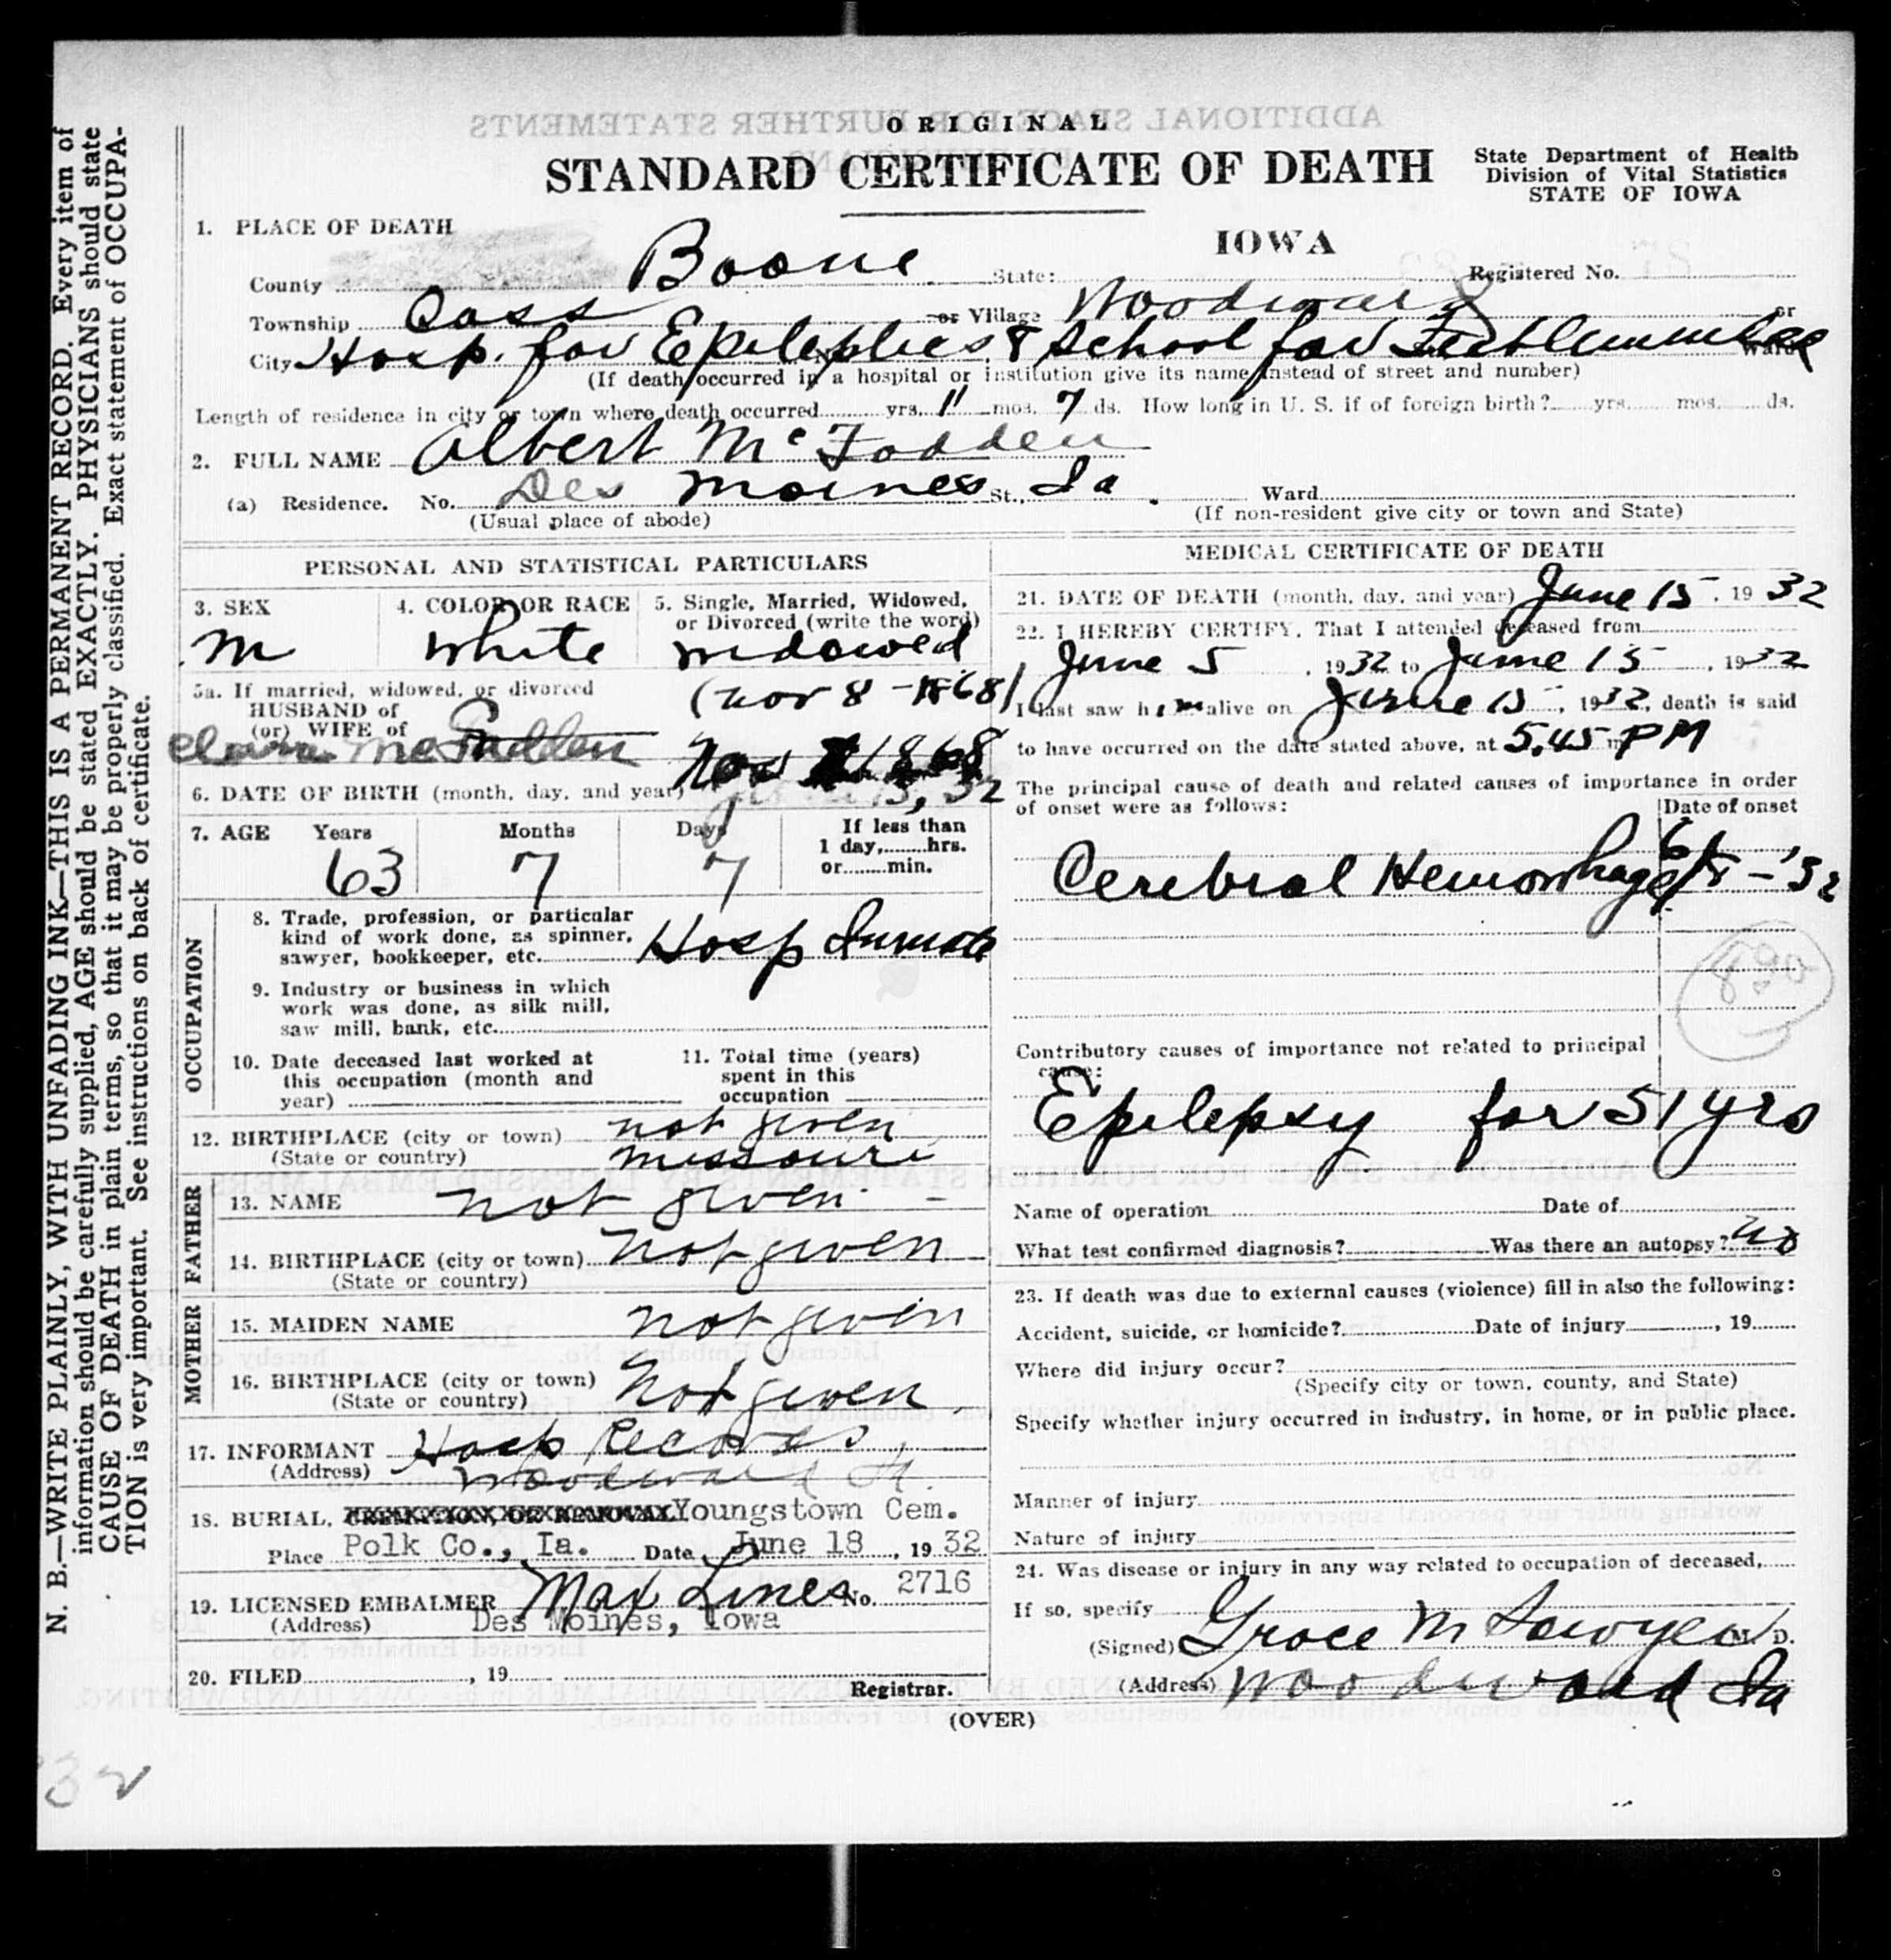 ORIGINAL
STANDARD CERTIFICATE OF DEATH
State Department of Health
Division of Vital Statistics
STATE OF IOWA
IOWA
1. PLACE OF DEATH
County Boone State: Registered No.
Township Cass or Village Woodward or
City Hosp. for Epileptics & School for Ward
(If death occurred in a hospital or institution give its name instead of street and number)
Length of residence in city or town where death occurred yrs. 11 mos. 7 ds. How long in U. S. if of foreign birth? yrs. mos. ds.
2. FULL NAME Albert Mc Fadden
(a) Residence. No. Des Moines St., Ia. Ward
(Usual place of abode) (If non-resident give city or town and State)
PERSONAL AND STATISTICAL PARTICULARS
3. SEX
M
4. COLOR OR RACE
White
5. Single, Married, Widowed, or Divorced (write the word)
widowed
5a. If married, widowed, or divorced
HUSBAND of
(or) WIFE of
McFadden
(Nov 8 - 1868)
Nov 1868
6. DATE OF BIRTH (month, day, and year)
7. AGE Years Months Days If less than
1 day, hrs.
or min.
63 7 7
OCCUPATION
8. Trade, profession, or particular
kind of work done, as spinner,
sawyer, bookkeeper, etc. Hosp Inmate
9. Industry or business in which
work was done, as silk mill,
saw mill, bank, etc.
10. Date deceased last worked at
this occupation (month and
year)
11. Total time (years)
spent in this
occupation
12. BIRTHPLACE (city or town) not given
(State or country) Missouri
FATHER
13. NAME not given
14. BIRTHPLACE (city or town) not given
(State or country)
MOTHER
15. MAIDEN NAME not given
16. BIRTHPLACE (city or town) not given
(State or country)
17. INFORMANT Hosp Records
(Address) Woodward Ia.
18. BURIAL, CREMATION, OR REMOVAL Youngstown Cem.
Place Polk Co., Ia. Date June 18, 1932
19. LICENSED EMBALMER Max Lines No. 2716
(Address) Des Moines, Iowa
20. FILED , 19
Registrar.
MEDICAL CERTIFICATE OF DEATH
21. DATE OF DEATH (month, day, and year) June 15, 1932
22. I HEREBY CERTIFY, That I attended deceased from
June 5, 1932 to June 15, 1932
I last saw him alive on June 15, 1932, death is said
to have occurred on the date stated above, at 5.45 m PM
The principal cause of death and related causes of importance in order
of onset were as follows:
Date of onset
Cerebral Hemorrhage 6/5-'32
Contributory causes of importance not related to principal
cause:
Epilepsy for 51 yrs
Name of operation Date of
What test confirmed diagnosis? Was there an autopsy? no
23. If death was due to external causes (violence) fill in also the following:
Accident, suicide, or homicide? Date of injury , 19
Where did injury occur?
(Specify city or town, county, and State)
Specify whether injury occurred in industry, in home, or in public place.
Manner of injury
Nature of injury
24. Was disease or injury in any way related to occupation of deceased,
If so, specify
(Signed) Grace M Sawyer M. D.
(Address) Woodward Ia
(OVER)
N. B.—WRITE PLAINLY, WITH UNFADING INK—THIS IS A PERMANENT RECORD. Every item of
information should be carefully supplied, AGE should be stated EXACTLY. PHYSICIANS should state
CAUSE OF DEATH in plain terms, so that it may be properly classified. Exact statement of OCCUPA-
TION is very important. See instructions on back of certificate.